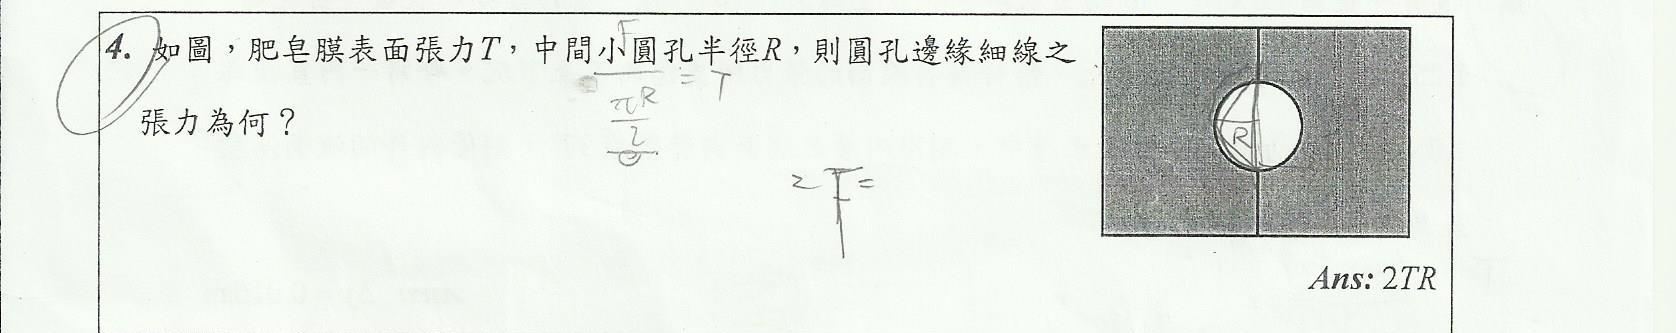 4. 如圖，肥皂膜表面張力T，中間小圓孔半徑R，則圓孔邊緣細線之
張力為何？
F
πR
2
= T
2F =
R
Ans: 2TR